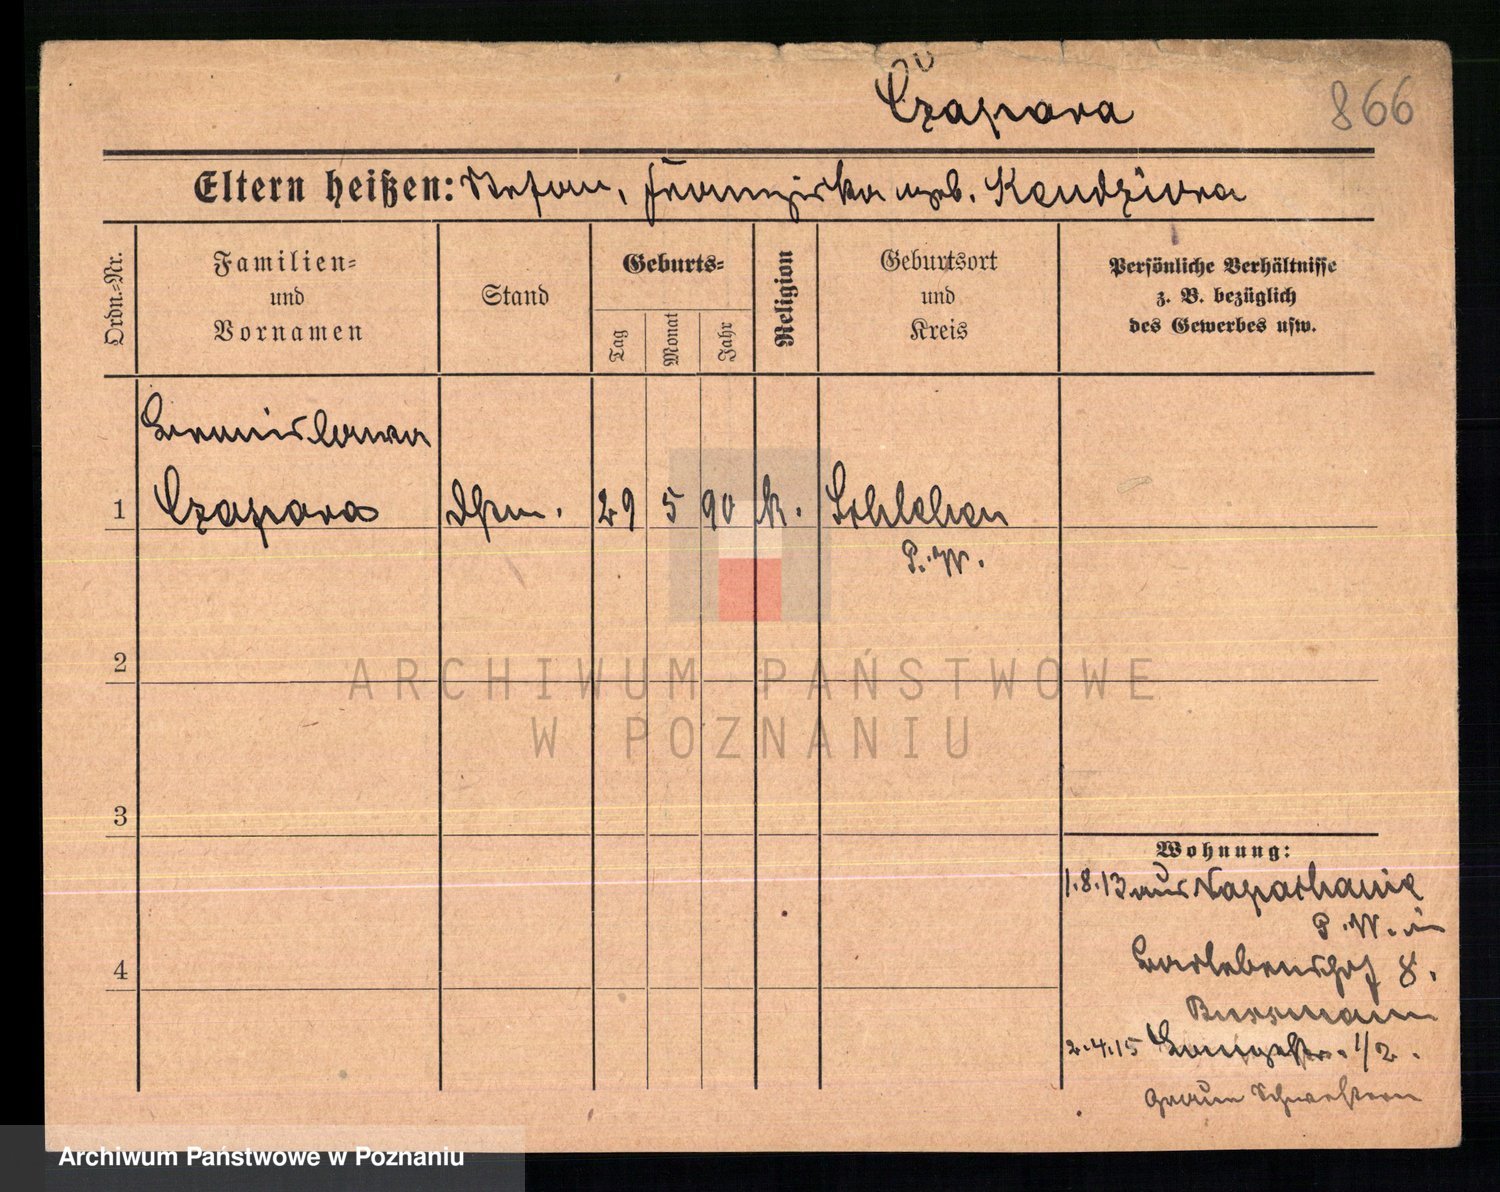 Czapara
866
Eltern heißen: Stefan, Franziska geb. Kendziora
Ordn.-Nr.
Familien-
und
Vornamen
Stand
Geburts-
Tag
Monat
Jahr
Religion
Geburtsort
und
Kreis
Persönliche Verhältnisse
z. B. bezüglich
des Gewerbes usw.
Bronislawa
1 Czapara
29 5 90 k. Schlehen
P. W.
2
3
4
Wohnung:
1.8.13 aus
P. W. in
8.
2.4.15 Langestr. 1/2.
Graue Schwestern
ARCHIWUM PAŃSTWOWE
W POZNANIU
Archiwum Państwowe w Poznaniu